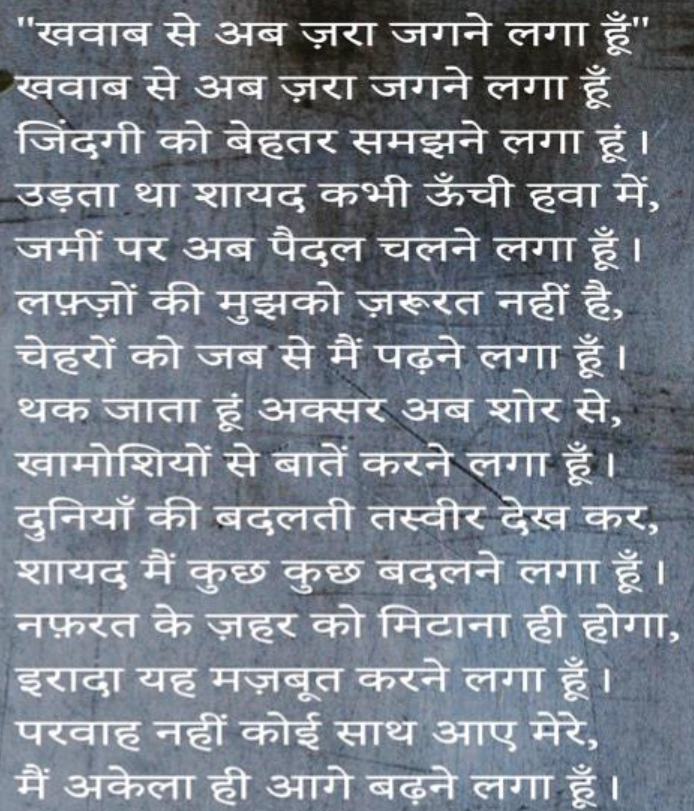 "खवाब से अब ज़रा जगने लगा हूँ"
खवाब से अब ज़रा जगने लगा हूँ
जिंदगी को बेहतर समझने लगा हूं।
उड़ता था शायद कभी ऊँची हवा में,
जमीं पर अब पैदल चलने लगा हूँ।
लफ़्ज़ों की मुझको ज़रूरत नहीं है,
चेहरों को जब से मैं पढ़ने लगा हूँ।
थक जाता हूं अक्सर अब शोर से,
खामोशियों से बातें करने लगा हूँ।
दुनियाँ की बदलती तस्वीर देख कर,
शायद मैं कुछ कुछ बदलने लगा हूँ।
नफ़रत के ज़हर को मिटाना ही होगा,
इरादा यह मज़बूत करने लगा हूँ।
परवाह नहीं कोई साथ आए मेरे,
मैं अकेला ही आगे बढ़ने लगा हूँ।